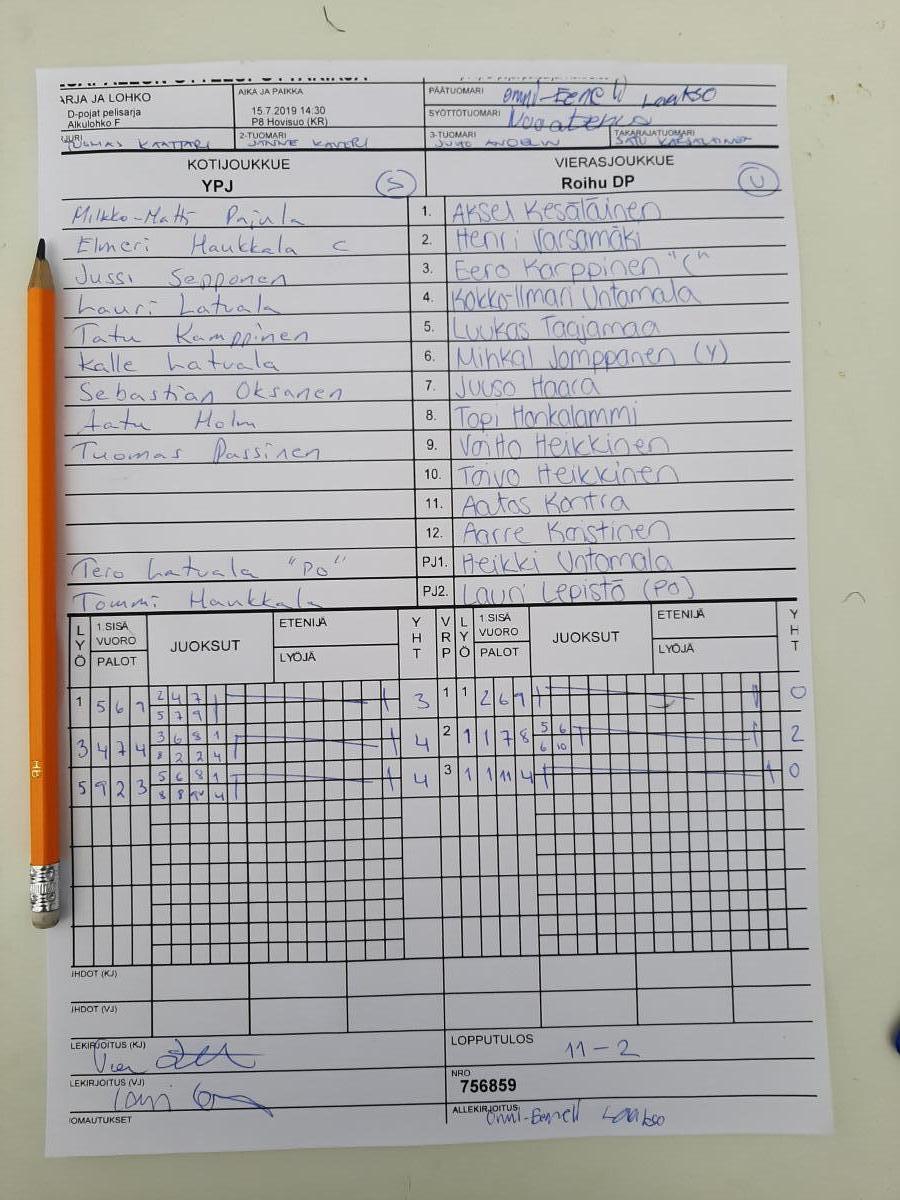 ARJA JA LOHKO
D-pojat pelisarja
Alkulohko F
AIKA JA PAIKKA
15.7.2019 14:30
P8 Hovisuo (KR)
PÄÄTUOMARI Onni-Eemeli Laakso
SYÖTTÖTUOMARI
2-TUOMARI
3-TUOMARI
TAKARAJATUOMARI
KOTIJOUKKUE
YPJ S
VIERASJOUKKUE
Roihu DP U
Miikko-Matti Pajula 1. Aksel Kesäläinen
Elmeri Haukkala C 2. Henri Varsamäki
Jussi Sepponen 3. Eero Karppinen "C"
Lauri Latvala 4. Kokko-Ilmari Untamala
Tatu Kamppinen 5. Luukas Taajamaa
Kalle Latvala 6. Minkal Jomppanen (Y)
Sebastian Oksanen 7. Juuso Haara
Aatu Holm 8. Topi Honkalammi
Tuomas Passinen 9. Voitto Heikkinen
10. Toivo Heikkinen
11. Aatos Kontra
12. Aarre Koistinen
Tero Latvala "PO" PJ1. Heikki Untamala
Tommi Haukkala PJ2. Lauri Lepistö (PO)
LYÖ 1.SISÄ VUORO PALOT JUOKSUT ETENIJÄ LYÖJÄ YHT VRP LYÖ 1.SISÄ VUORO PALOT JUOKSUT ETENIJÄ LYÖJÄ YHT
1 5 6 9 2 4 7 1 3 1 1 2 6 9 0
5 7 9 1
3 4 7 4 3 6 8 1 4 2 1 1 7 8 5 6 2
8 2 2 4 6 10
5 9 2 3 5 6 8 1 4 3 1 1 11 4 0
IHDOT (KJ)
IHDOT (VJ)
LEKIRJOITUS (KJ)
LOPPUTULOS 11-2
LEKIRJOITUS (VJ)
NRO
756859
OMAUTUKSET
ALLEKIRJOITUS Onni-Eemeli Laakso